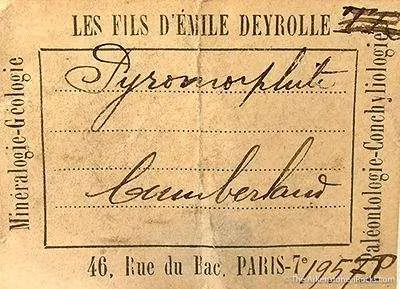 LES FILS D'ÉMILE DEYROLLE
Minéralogie-Géologie
Pyromorphite
Cumberland
Paléontologie-Conchyliologie
46, Rue du Bac, PARIS-7e